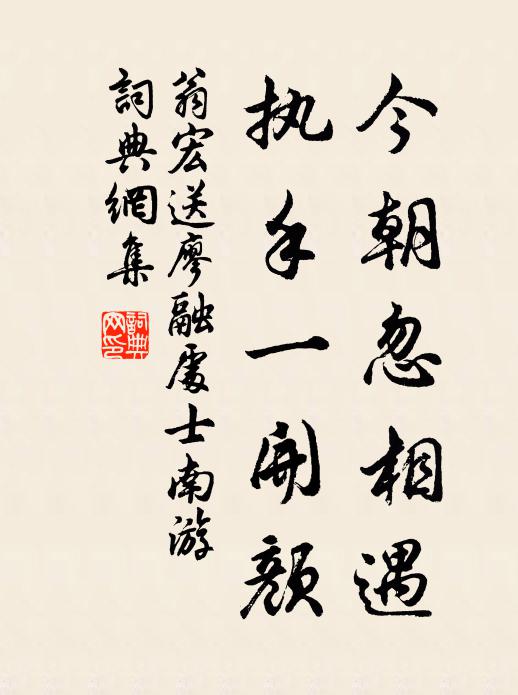 今朝忽相遇
执手一開颜
翁宏送廖融處士南游
詞典網集
詞典网印